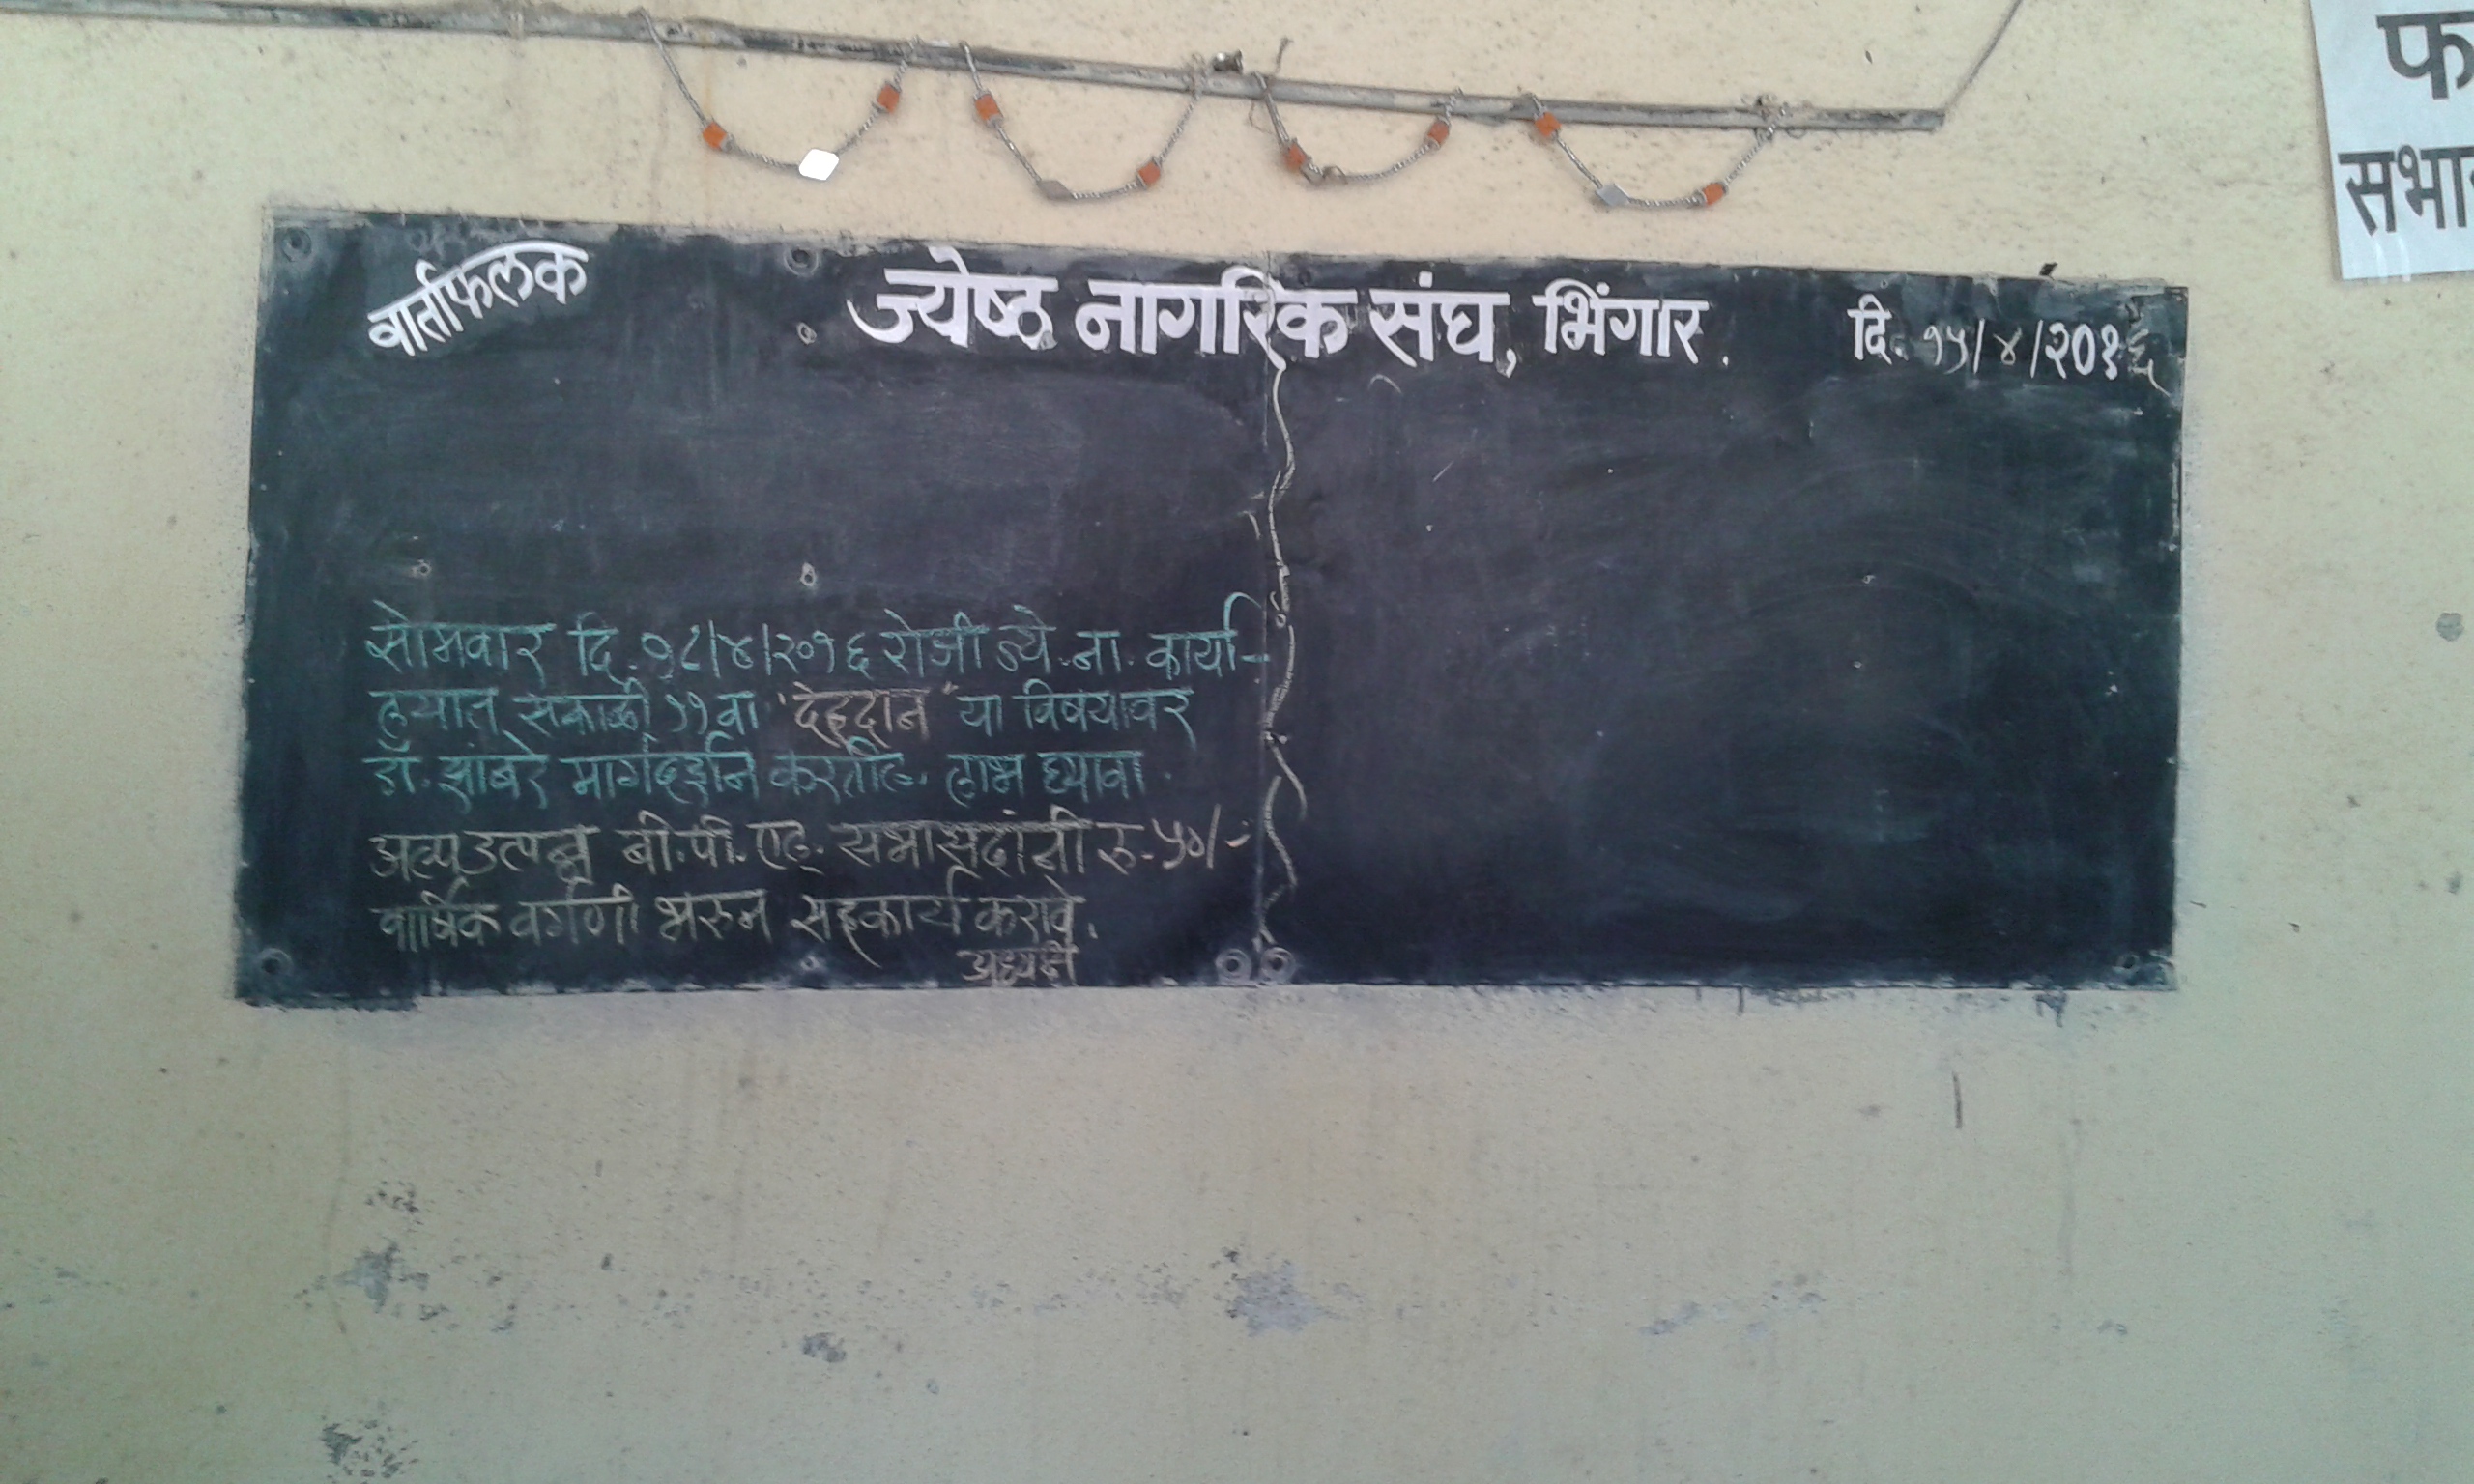 वार्ताफलक
ज्येष्ठ नागरिक संघ, भिंगार.
दि. १५/४/२०१६
सोमवार दि. १८/४/२०१६ रोजी ज्ये. ना. कार्या-
लयात सकाळी ११ वा "देहदान" या विषयावर
डॉ. झांबरे मार्गदर्शन करतील. लाभ घ्यावा.
अल्पउत्पन्न बी. पी. एल. सभासदांनी रु. ५०/-
वार्षिक वर्गणी भरुन सहकार्य करावे.
अध्यक्ष
फ
सभा